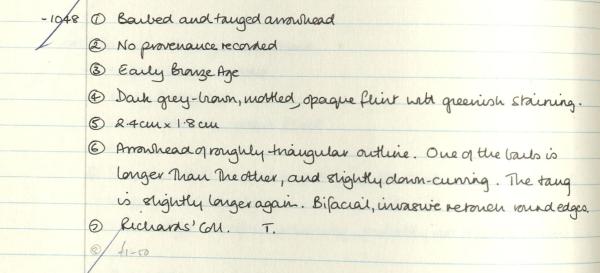 -1048 ① Barbed and tanged arrowhead
② No provenance recorded
③ Early Bronze Age
④ Dark grey-brown, mottled, opaque flint with greenish staining.
⑤ 2.4cm x 1.8cm
⑥ Arrowhead of roughly triangular outline. One of the barbs is
longer than the other, and slightly down-curving. The tang
is slightly longer again. Bifacial, invasive retouch round edges.
⑦ Richards' Coll. T.
⑧ £1-50